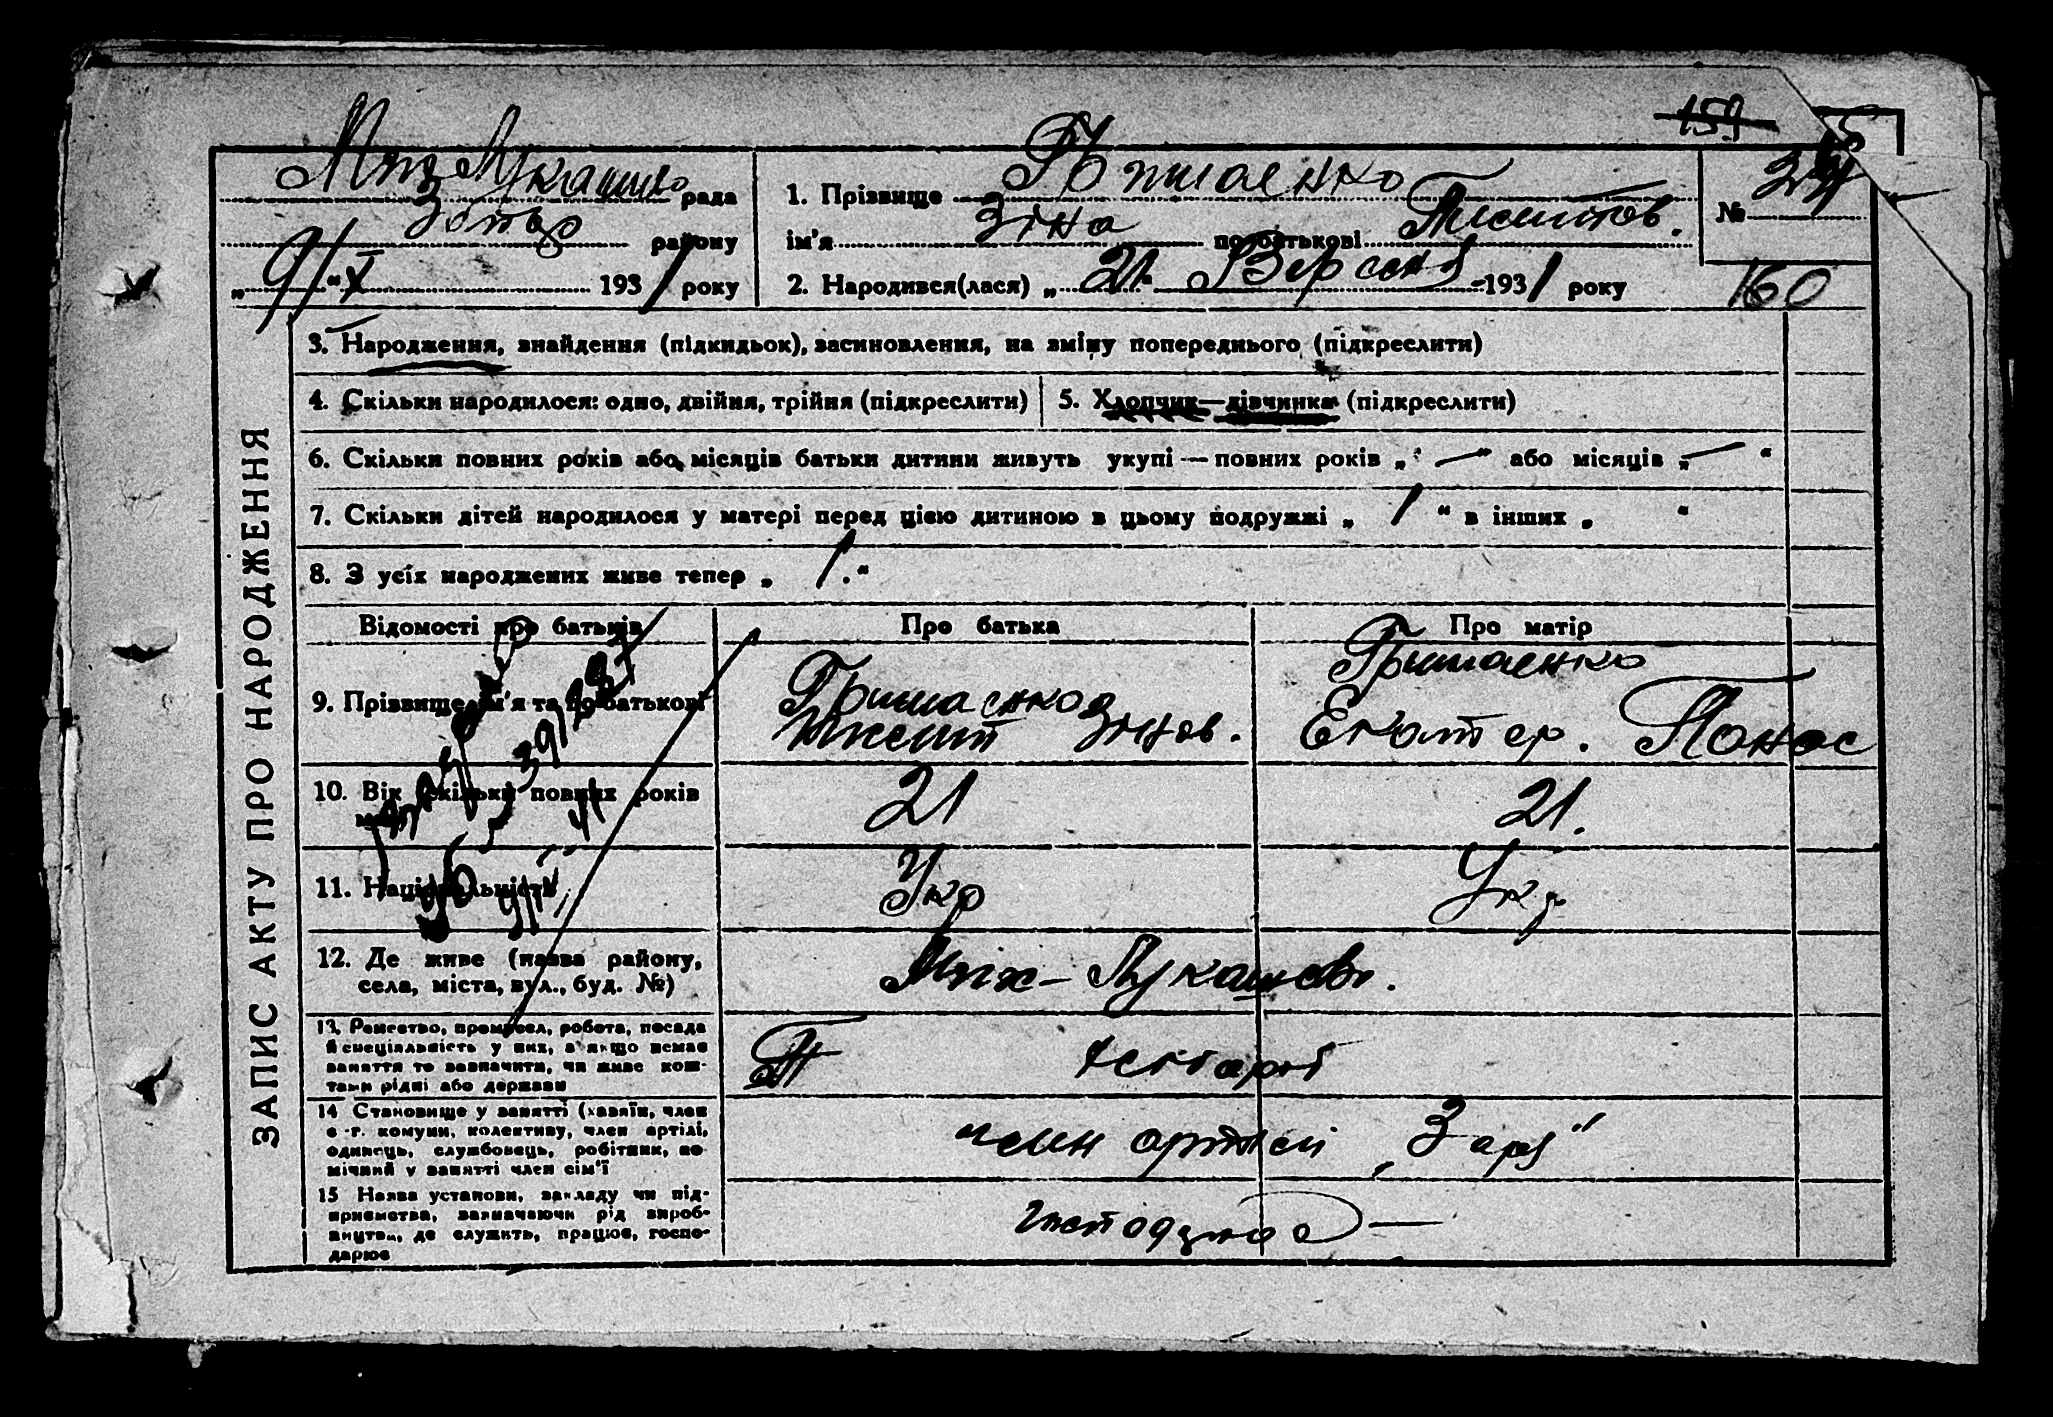 159
Мих Лукашево рада
району
„ 9/ “ X 1931 року
1. Прізвище Гришаенко
ім'я Зіна по батькові
2. Народився(лася) „ 21 “ Вересня 1931 року
№ 34
160
ЗАПИС АКТУ ПРО НАРОДЖЕННЯ
3. Народження, знайдення (підкидьок), засиновлення, на зміну попереднього (підкреслити)
4. Скільки народилося: одно, двійня, трійня (підкреслити)
5. Хлопчик—дівчинка (підкреслити)
6. Скільки повних років або місяців батьки дитини живуть укупі — повних років „ — “ або місяців „ — “
7. Скільки дітей народилося у матері перед цією дитиною в цьому подружжі „ 1 “ в інших „ “
8. З усіх народжених живе тепер „ 1. “
Відомості про батьків
Про батька
Про матір
9. Прізвище, ім'я та по батькові
Гришаенко
Зінов.
Гришаенко
Екатер. Панас
10. Вік (скільки повних років
21
21.
11. Національність
Укр
Укр
12. Де живе (назва району,
села, міста, вул., буд. №)
Мих-Лукашево.
13. Ремество, промисел, робота, посада
й спеціяльність у них, а якщо немає
заняття то зазначити, чи живе кош-
тами рідні або держави
хлібороб
14 Становище у занятті (хазяїн, член
с.-г. комуни, колективу, член артілі,
одинець, службовець, робітник, по-
мічний у занятті член сім'ї
член артілі „Заря“
15 Назва установи, закладу чи під-
приємства, зазначаючи рід вироб-
ництва, де служить, працює, госпо-
дарює